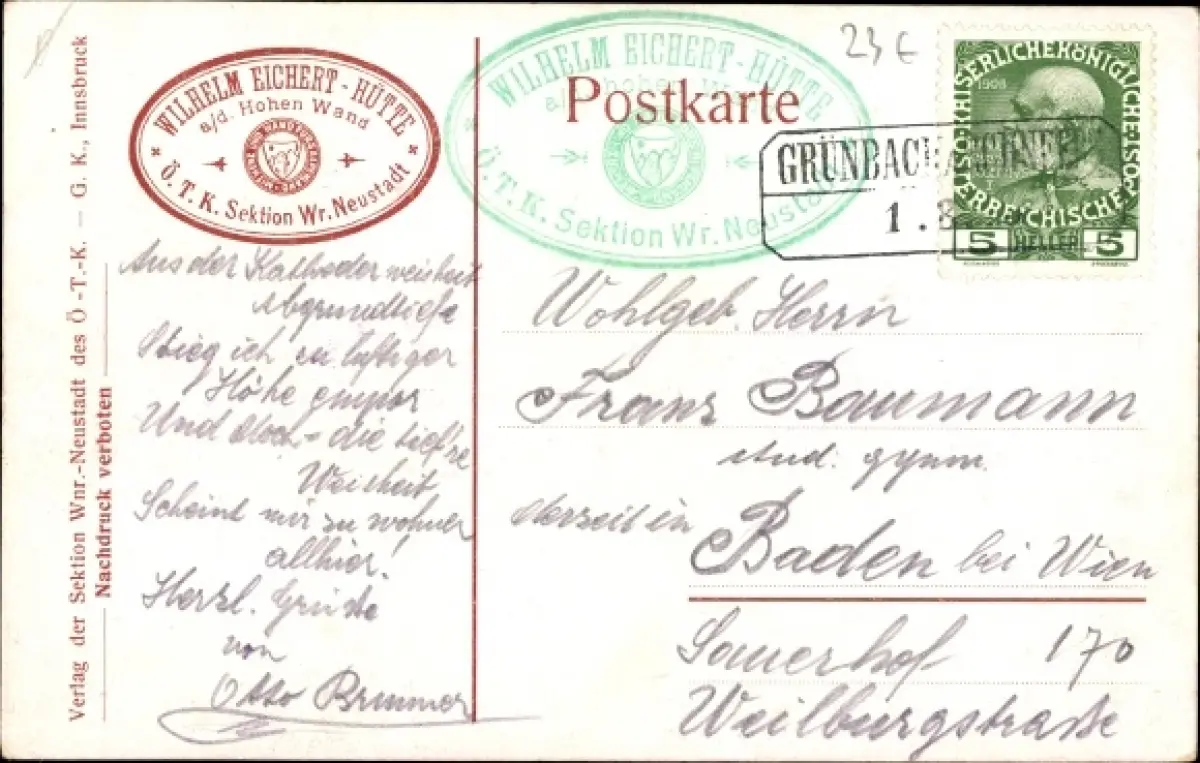 Verlag der Sektion Wnr.-Neustadt des Ö.-T.-K. — G. K., Innsbruck
Nachdruck verboten
WILHELM EICHERT-HÜTTE
a/d. Hohen Wand
Ö. T. K. Sektion Wr. Neustadt
Aus der
Abgrundtiefe
Stieg ich zu luftiger
Höhe empor
Und doch - die tiefre
Weisheit
Scheint mir zu wohnen
allhier!
Herzl. Grüße
von
Otto Brunner
WILHELM EICHERT-HÜTTE
a/d. hohen Wand
Ö. T. K. Sektion Wr. Neustadt
Postkarte
23 €
KAISERLICHE KÖNIGLICHE ÖSTERREICHISCHE POST
1908
5 HELLER 5
GRÜNBACH
1.
Wohlgeb. Herrn
Franz Baumann
stud. gymn.
derzeit in
Baden bei Wien
Sauerhof 170
Weilburgstrasse